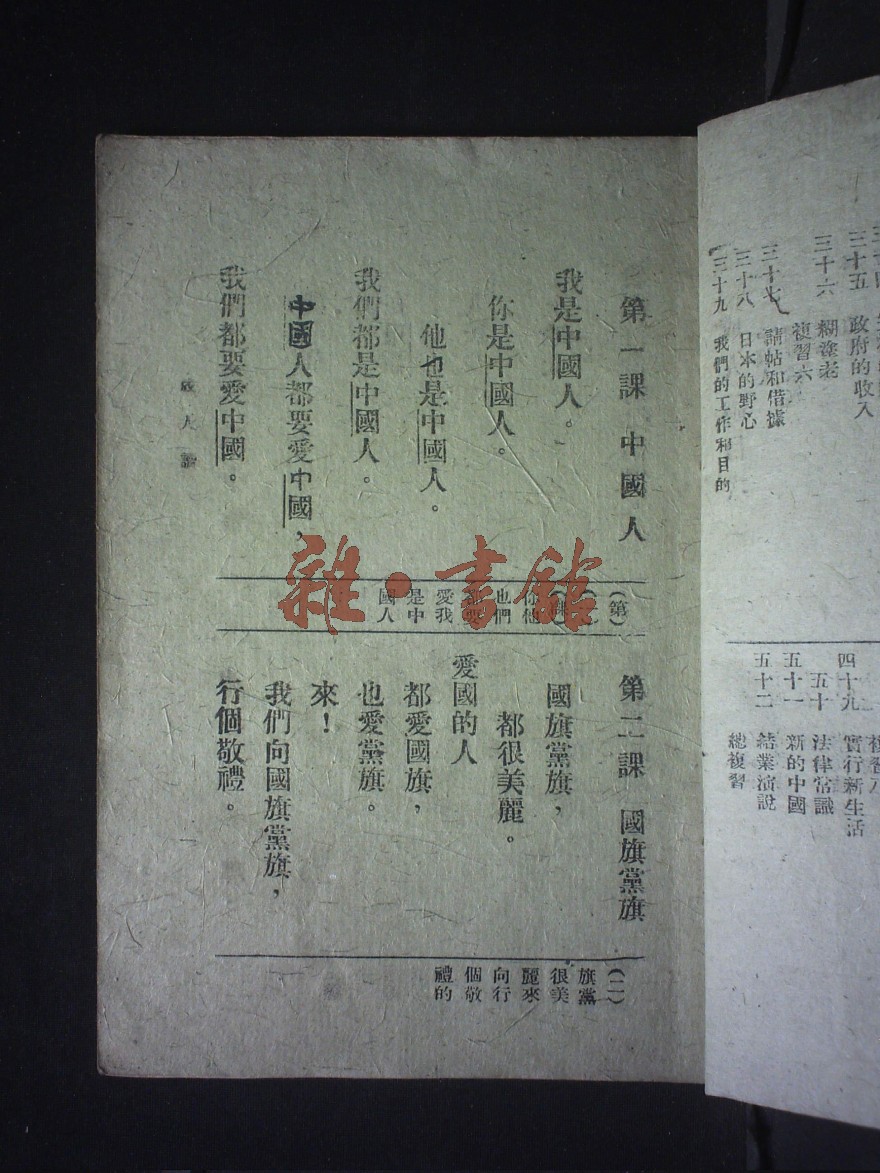 三十五 政府的收入
三十六 糊塗老
複習六
三十七 請帖和借據
三十八 日本的野心
三十九 我們的工作和目的
四十九 實行新生活
五十 法律常識
五十一 新的中國
五十二 結業演說
總複習
第一課 中國人
我是中國人。
你是中國人。
他也是中國人。
我們都是中國人。
中國人都要愛中國，
我們都要愛中國。
(第)
你他
也們
都要
愛我
是中
國人
第二課 國旗黨旗
國旗黨旗，
都很美麗。
愛國的人
都愛國旗，
也愛黨旗。
來！
我們向國旗黨旗，
行個敬禮。
(二)
旗黨
很美
麗來
向行
個敬
禮的
雜·書館